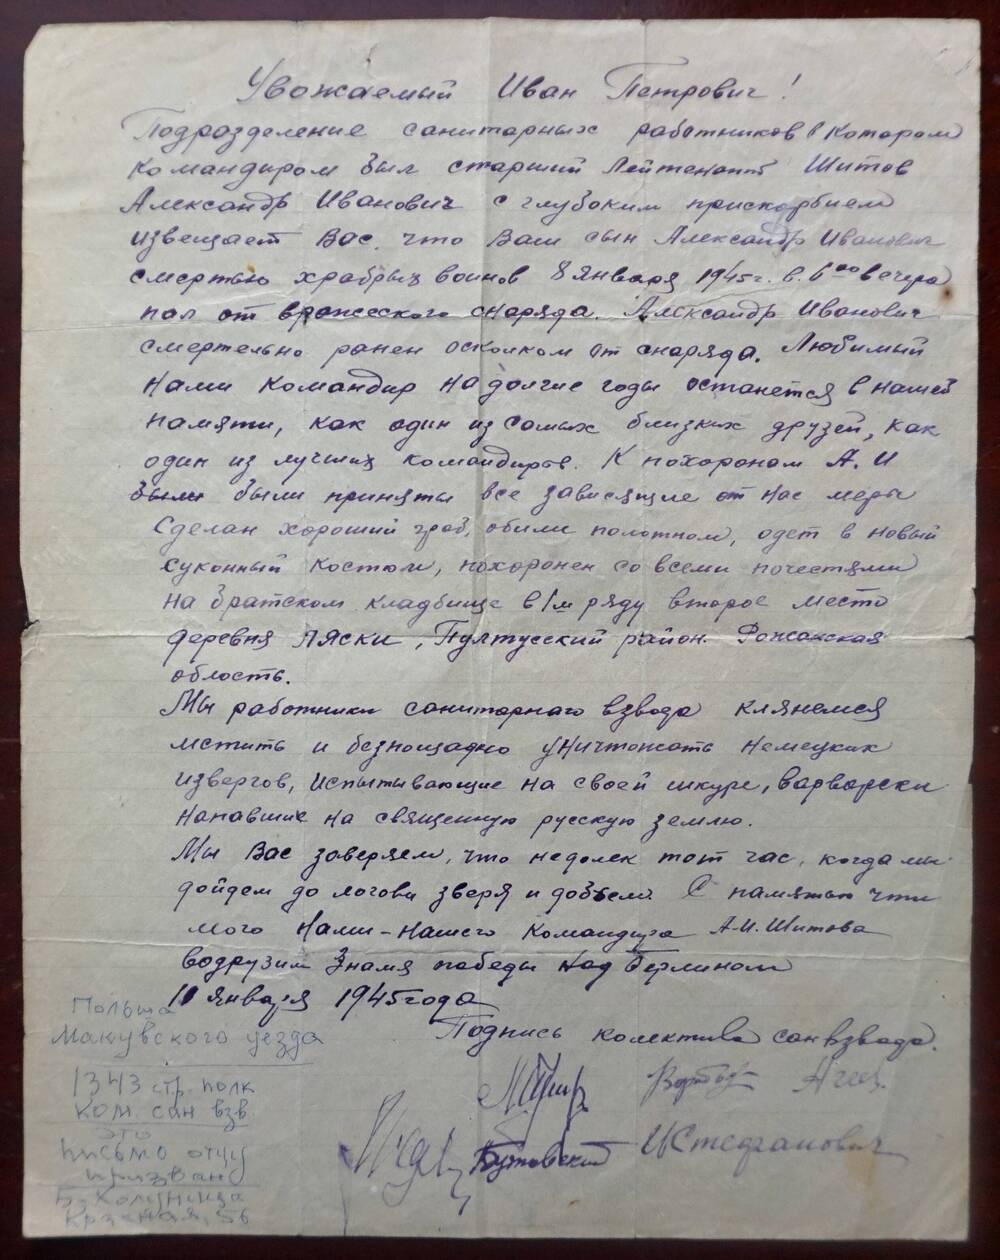 Уважаемый Иван Петрович!
Подразделение санитарных работников в Котором
командиром был старший Лейтенант Шитов
Александр Иванович с глубоким прискорбием
извещает Вас, что Ваш сын Александр Иванович
смертью храбрых воинов 8 января 1945г. в 6⁰⁰ вечера
пал от вражеского снаряда. Александр Иванович
смертельно ранен осколком от снаряда. Любимый
нами командир на долгие годы останется в нашей
памяти, как один из самых близких друзей, как
один из лучших командиров. К похоронам А. И
были были приняты все зависящие от нас меры
Сделан хороший гроб, обили полотном, одет в новый
суконный костюм, похоронен со всеми почестями
на братском кладбище в 1м ряду второе место
деревня Ляски, Пултусский район. Рожанская
область.
Мы работники санитарного взвода клянемся
мстить и безпощадно уничтожать немецких
извергов, испытывающие на своей шкуре, варварски
напавшие на священную русскую землю.
Мы Вас заверяем, что недалек тот час, когда мы
дойдем до логова зверя и добьем. С памятью чти
мого нами-нашего командира А.И. Шитова
водрузим Знамя победы над Берлином
10 января 1945 года
Подпись колектива санвзвода.
Польша
Макувского уезда
1343 стр. полк
ком. сан взв.
это
письмо отцу
призван
Б-Холуница
Красная, 56
Бутовский
ИСтефанович